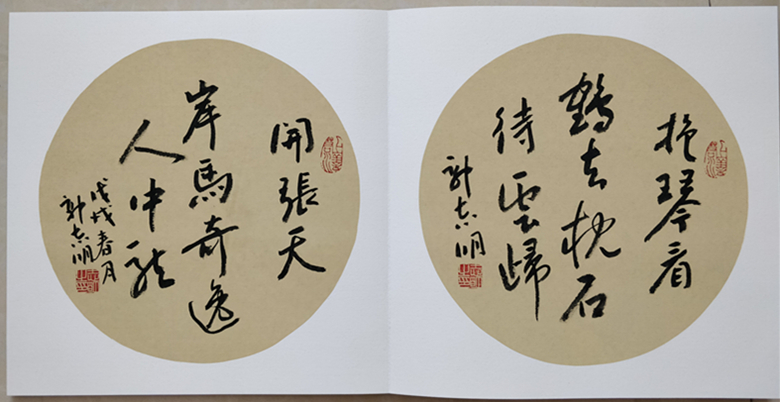 抱琴看
鶴去枕石
待雲歸
志明
開張天
岸馬奇逸
人中龍
戊戌春月
志明